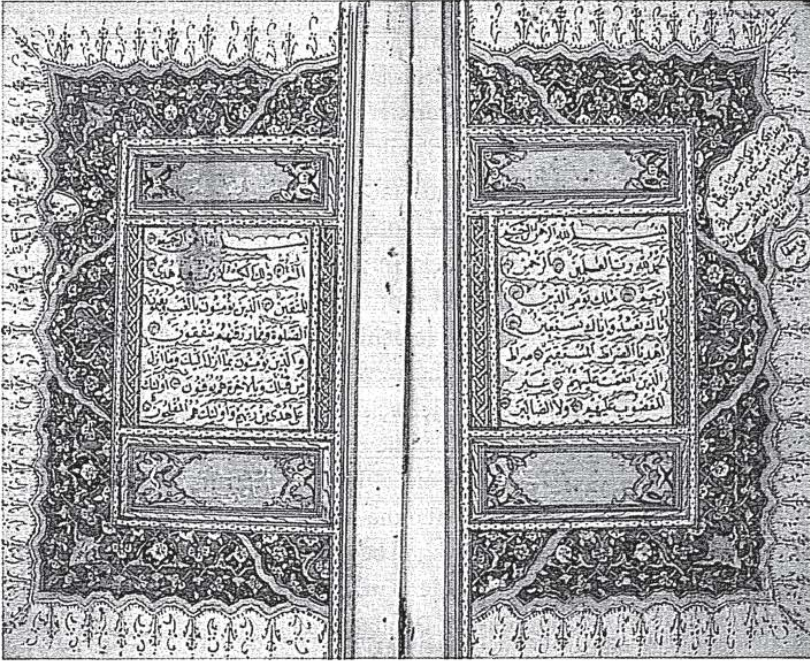 بسم الله الرحمن الرحيم
الحمد لله رب العالمين الرحمن
الرحيم مالك يوم الدين
اياك نعبد واياك نستعين
اهدنا الصراط المستقيم صراط
الذين انعمت عليهم غير
المغضوب عليهم ولا الضالين
بسم الله الرحمن الرحيم
الم ذلك الكتاب لا ريب فيه هدى
للمتقين الذين يؤمنون بالغيب ويقيمون
الصلوة ومما رزقنهم ينفقون
والذين يؤمنون بما انزل اليك وما انزل
من قبلك وبالاخرة هم يوقنون اولئك
على هدى من ربهم واولئك هم المفلحون